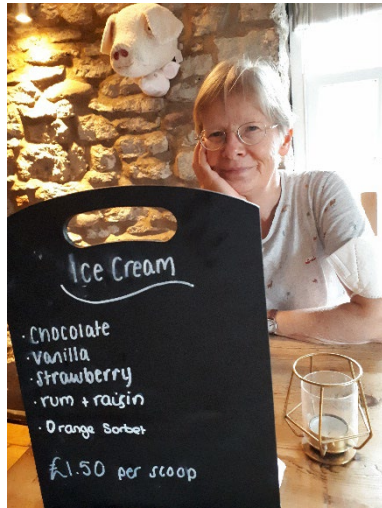 Ice Cream
· Chocolate
· Vanilla
· Strawberry
· rum + raisin
· Orange Sorbet
£1.50 per scoop